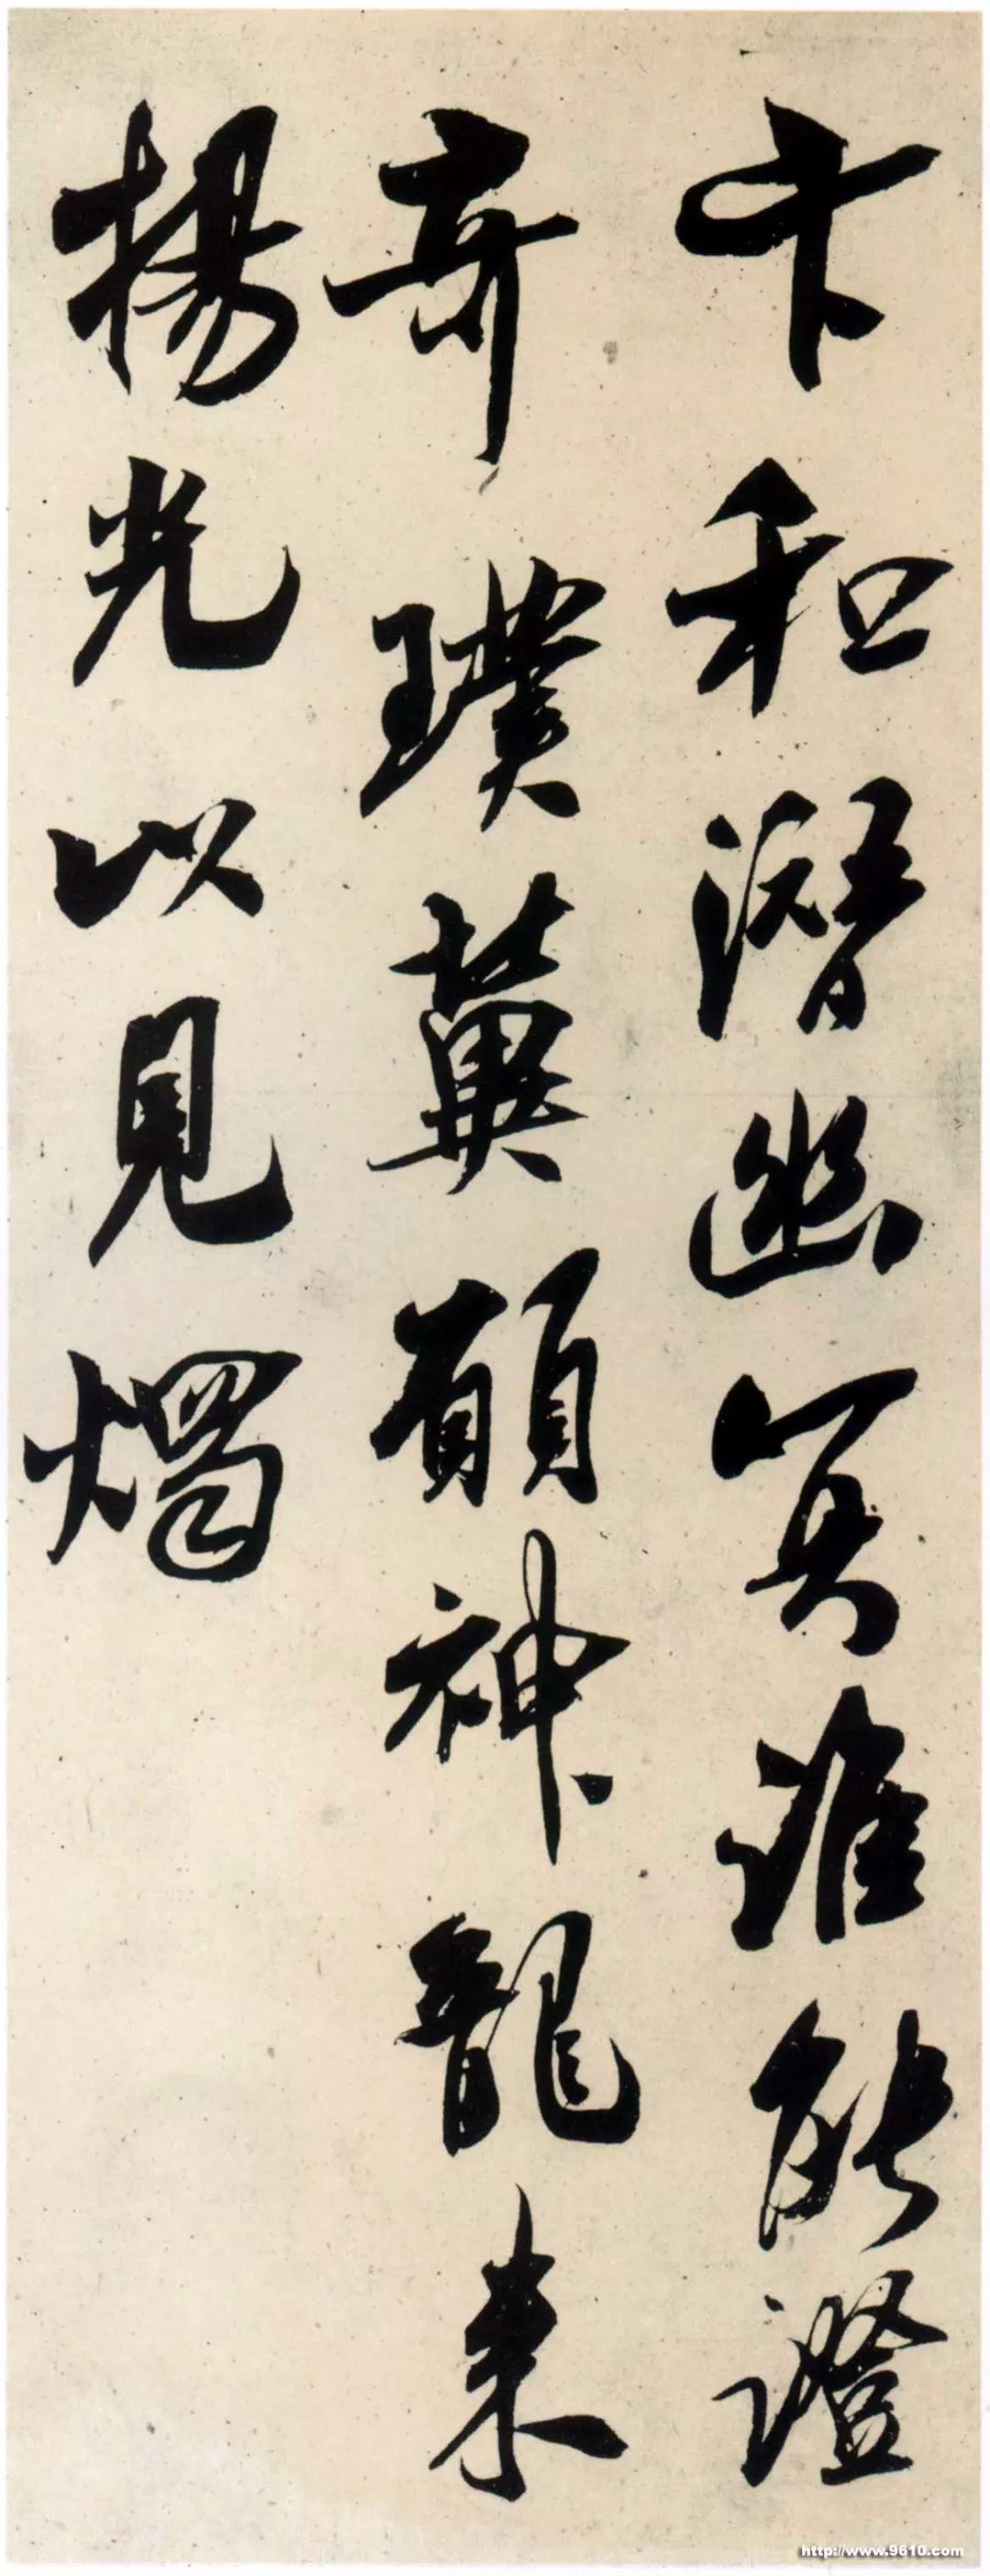 卞和潛幽冥誰能證
奇璞冀願神龍来
揚光以見燭
http://www.9610.com